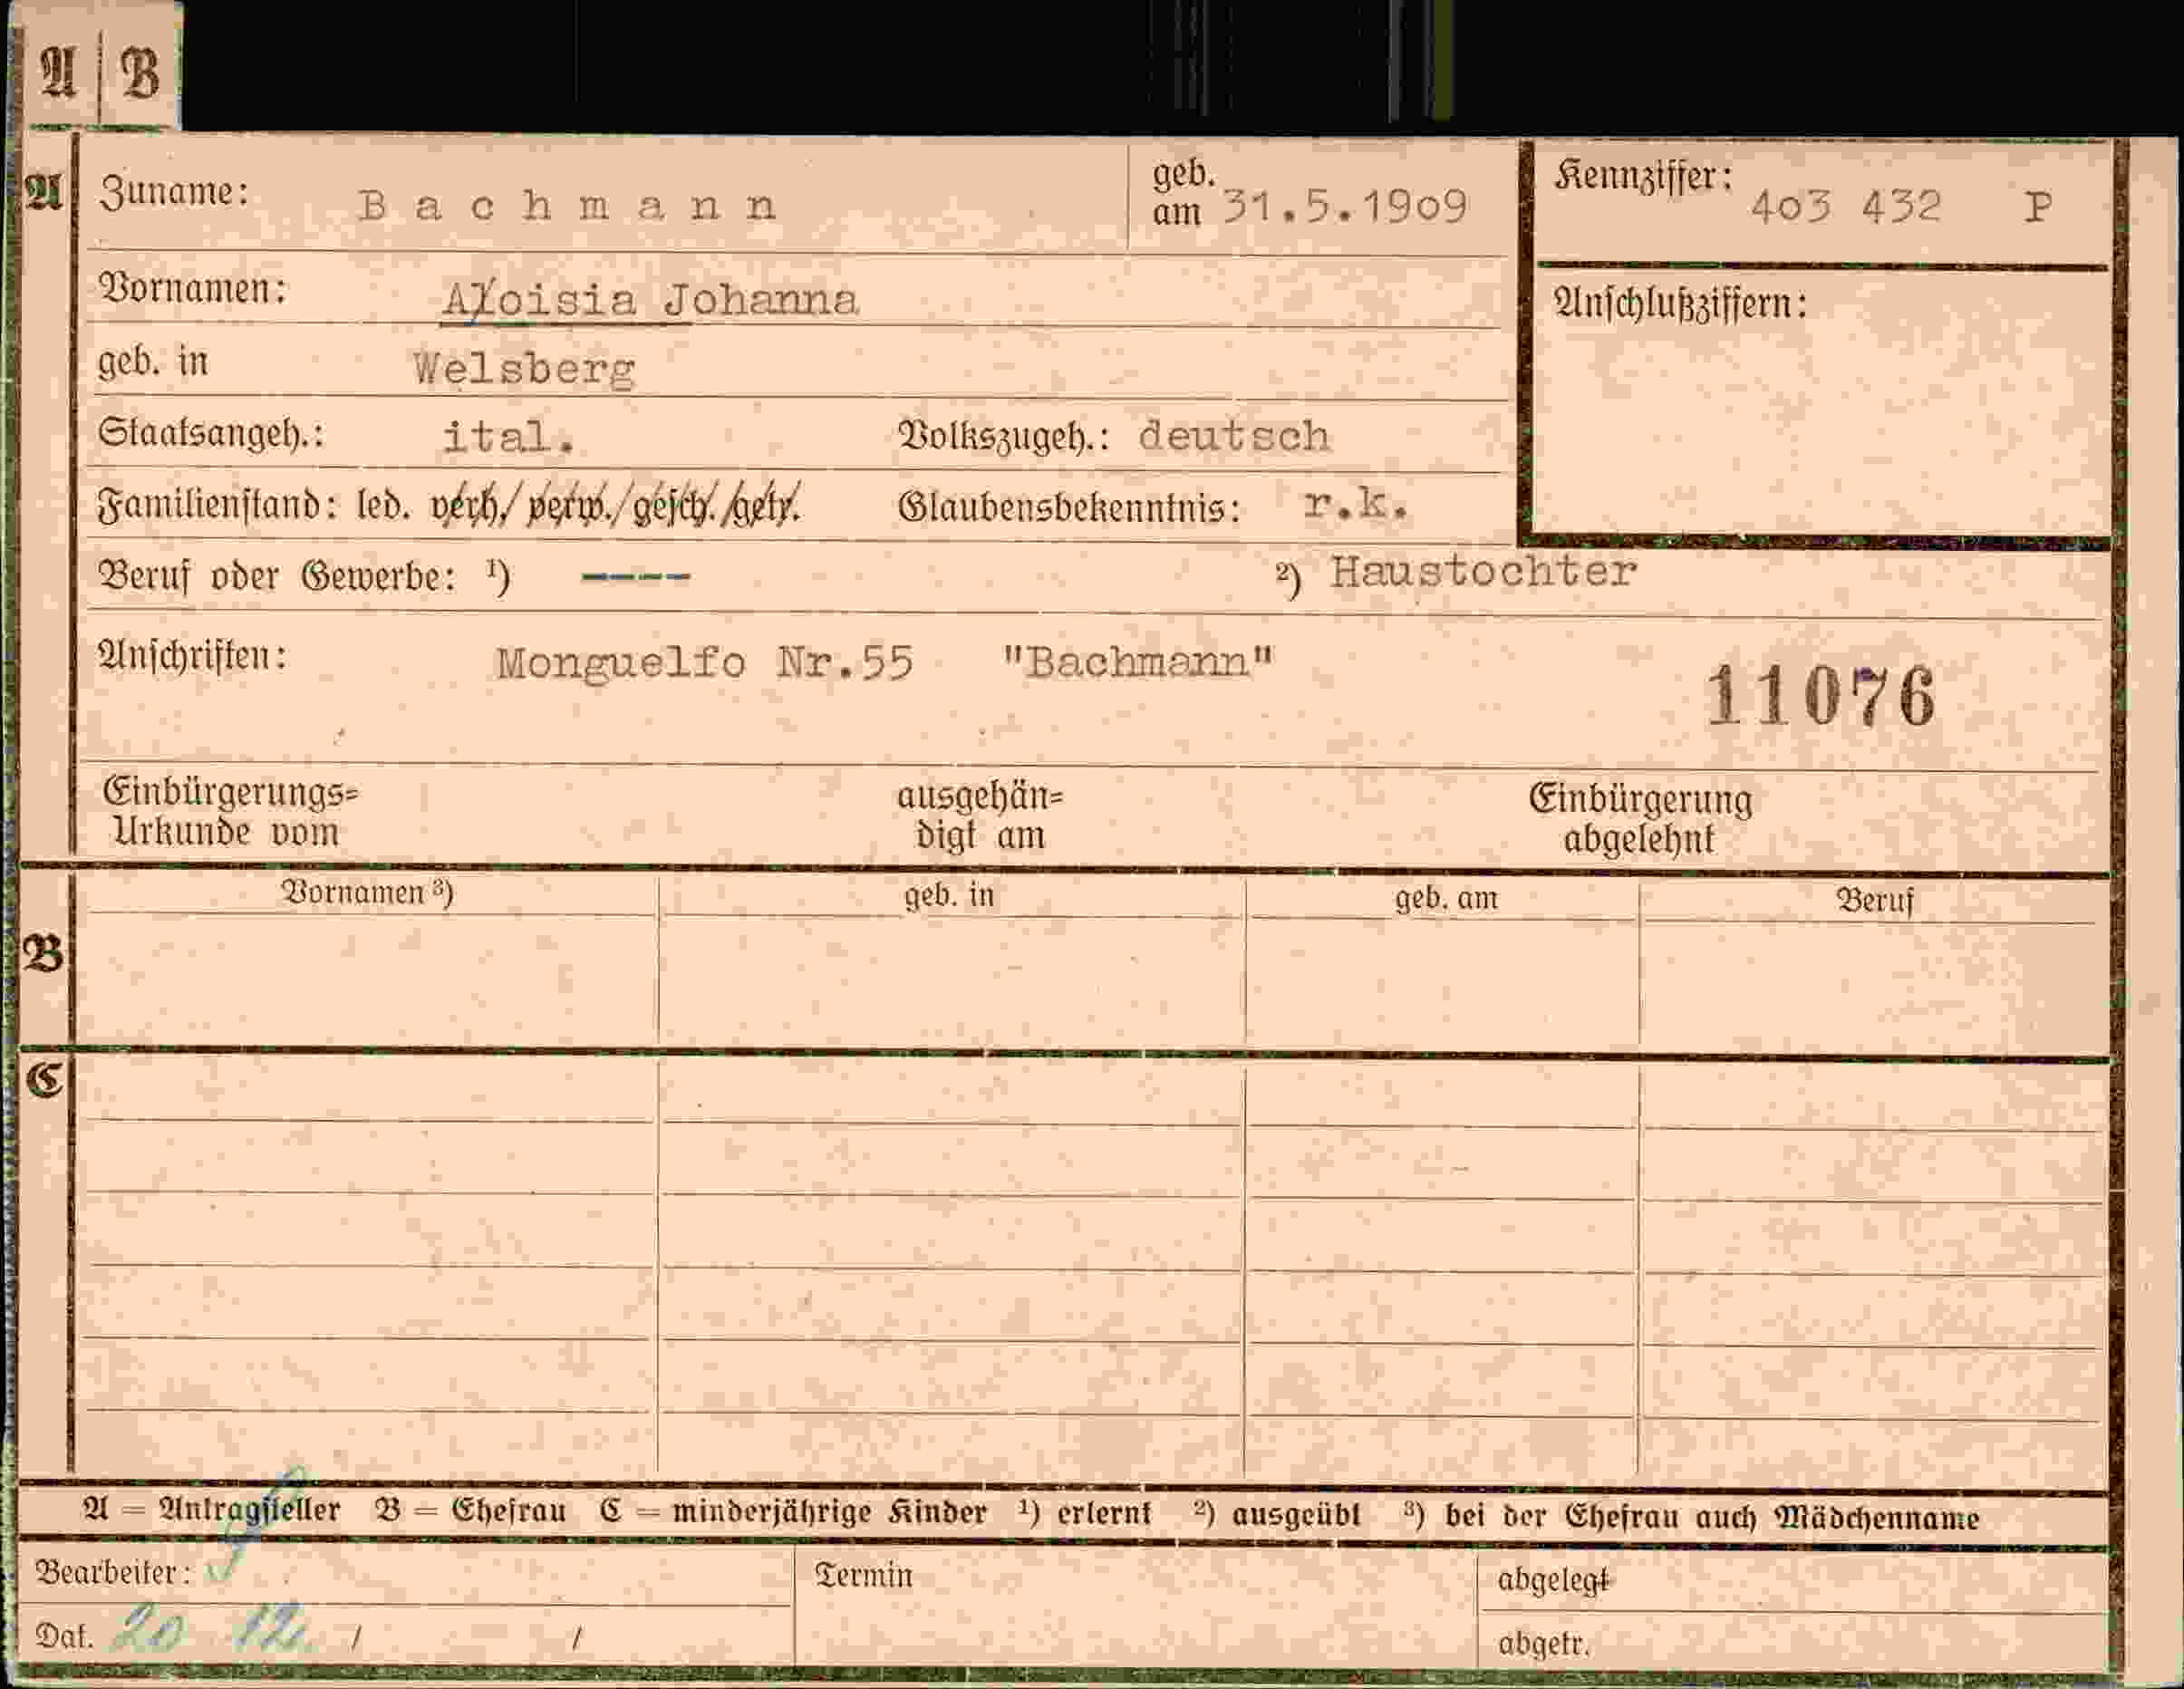 A | B
A Zuname: Bachmann geb. am 31.5.1909 Kennziffer: 403 432 P
Vornamen: Aloisia Johanna Anschlußziffern:
geb. in Welsberg
Staatsangeh.: ital. Volkszugeh.: deutsch
Familienstand: led. verh./verw./gesch./getr. Glaubensbekenntnis: r.k.
Beruf oder Gewerbe: ¹) ---- ²) Haustochter
Anschriften: Monguelfo Nr.55 "Bachmann"
11076
Einbürgerungs= ausgehän= Einbürgerung
Urkunde vom digt am abgelehnt
Vornamen ³) geb. in geb. am Beruf
B
C
A = Antragsteller B = Ehefrau C = minderjährige Kinder ¹) erlernt ²) ausgeübt ³) bei der Ehefrau auch Mädchenname
Bearbeiter: Termin abgelegt
Dat. 20 12. / / abgetr.